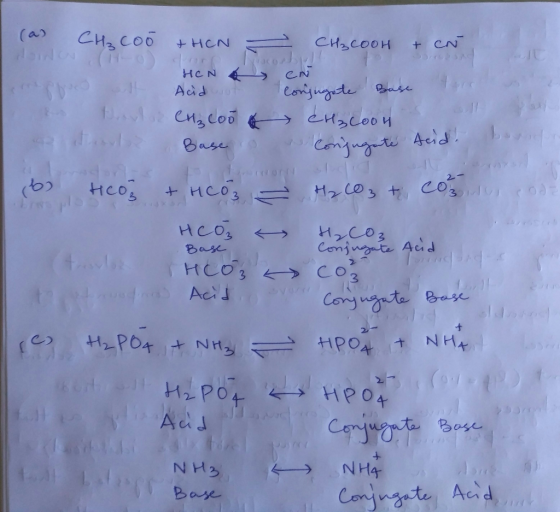 (a) CH₃COO⁻ + HCN ⇌ CH₃COOH + CN⁻
HCN ↔ CN⁻
Acid Conjugate Base
CH₃COO⁻ ↔ CH₃COOH
Base Conjugate Acid.
(b) HCO₃⁻ + HCO₃⁻ ⇌ H₂CO₃ + CO₃²⁻
HCO₃⁻ ↔ H₂CO₃
Base Conjugate Acid
HCO₃⁻ ↔ CO₃²⁻
Acid Conjugate Base
(c) H₂PO₄⁻ + NH₃ ⇌ HPO₄²⁻ + NH₄⁺
H₂PO₄⁻ ↔ HPO₄²⁻
Acid Conjugate Base
NH₃ ↔ NH₄⁺
Base Conjugate Acid